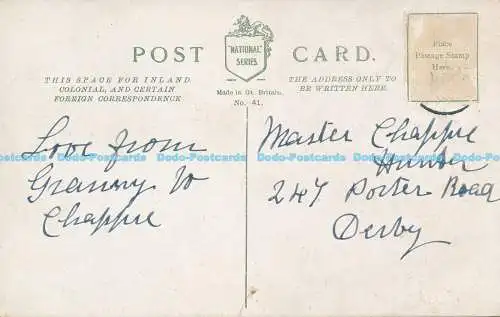 POST CARD.
"NATIONAL"
SERIES.
Made in Gt. Britain.
No. 41.
THIS SPACE FOR INLAND
COLONIAL, AND CERTAIN
FOREIGN CORRESPONDENCE
THE ADDRESS ONLY TO
BE WRITTEN HERE.
Postage Stamp
Here.
Love from
Granny to
Chappie
Master Chappie
Hunter
247 Porter Road
Derby
Dodo-Postcards Dodo-Postcards Dodo-Postcards Dodo-Postcards Dodo-Postcards